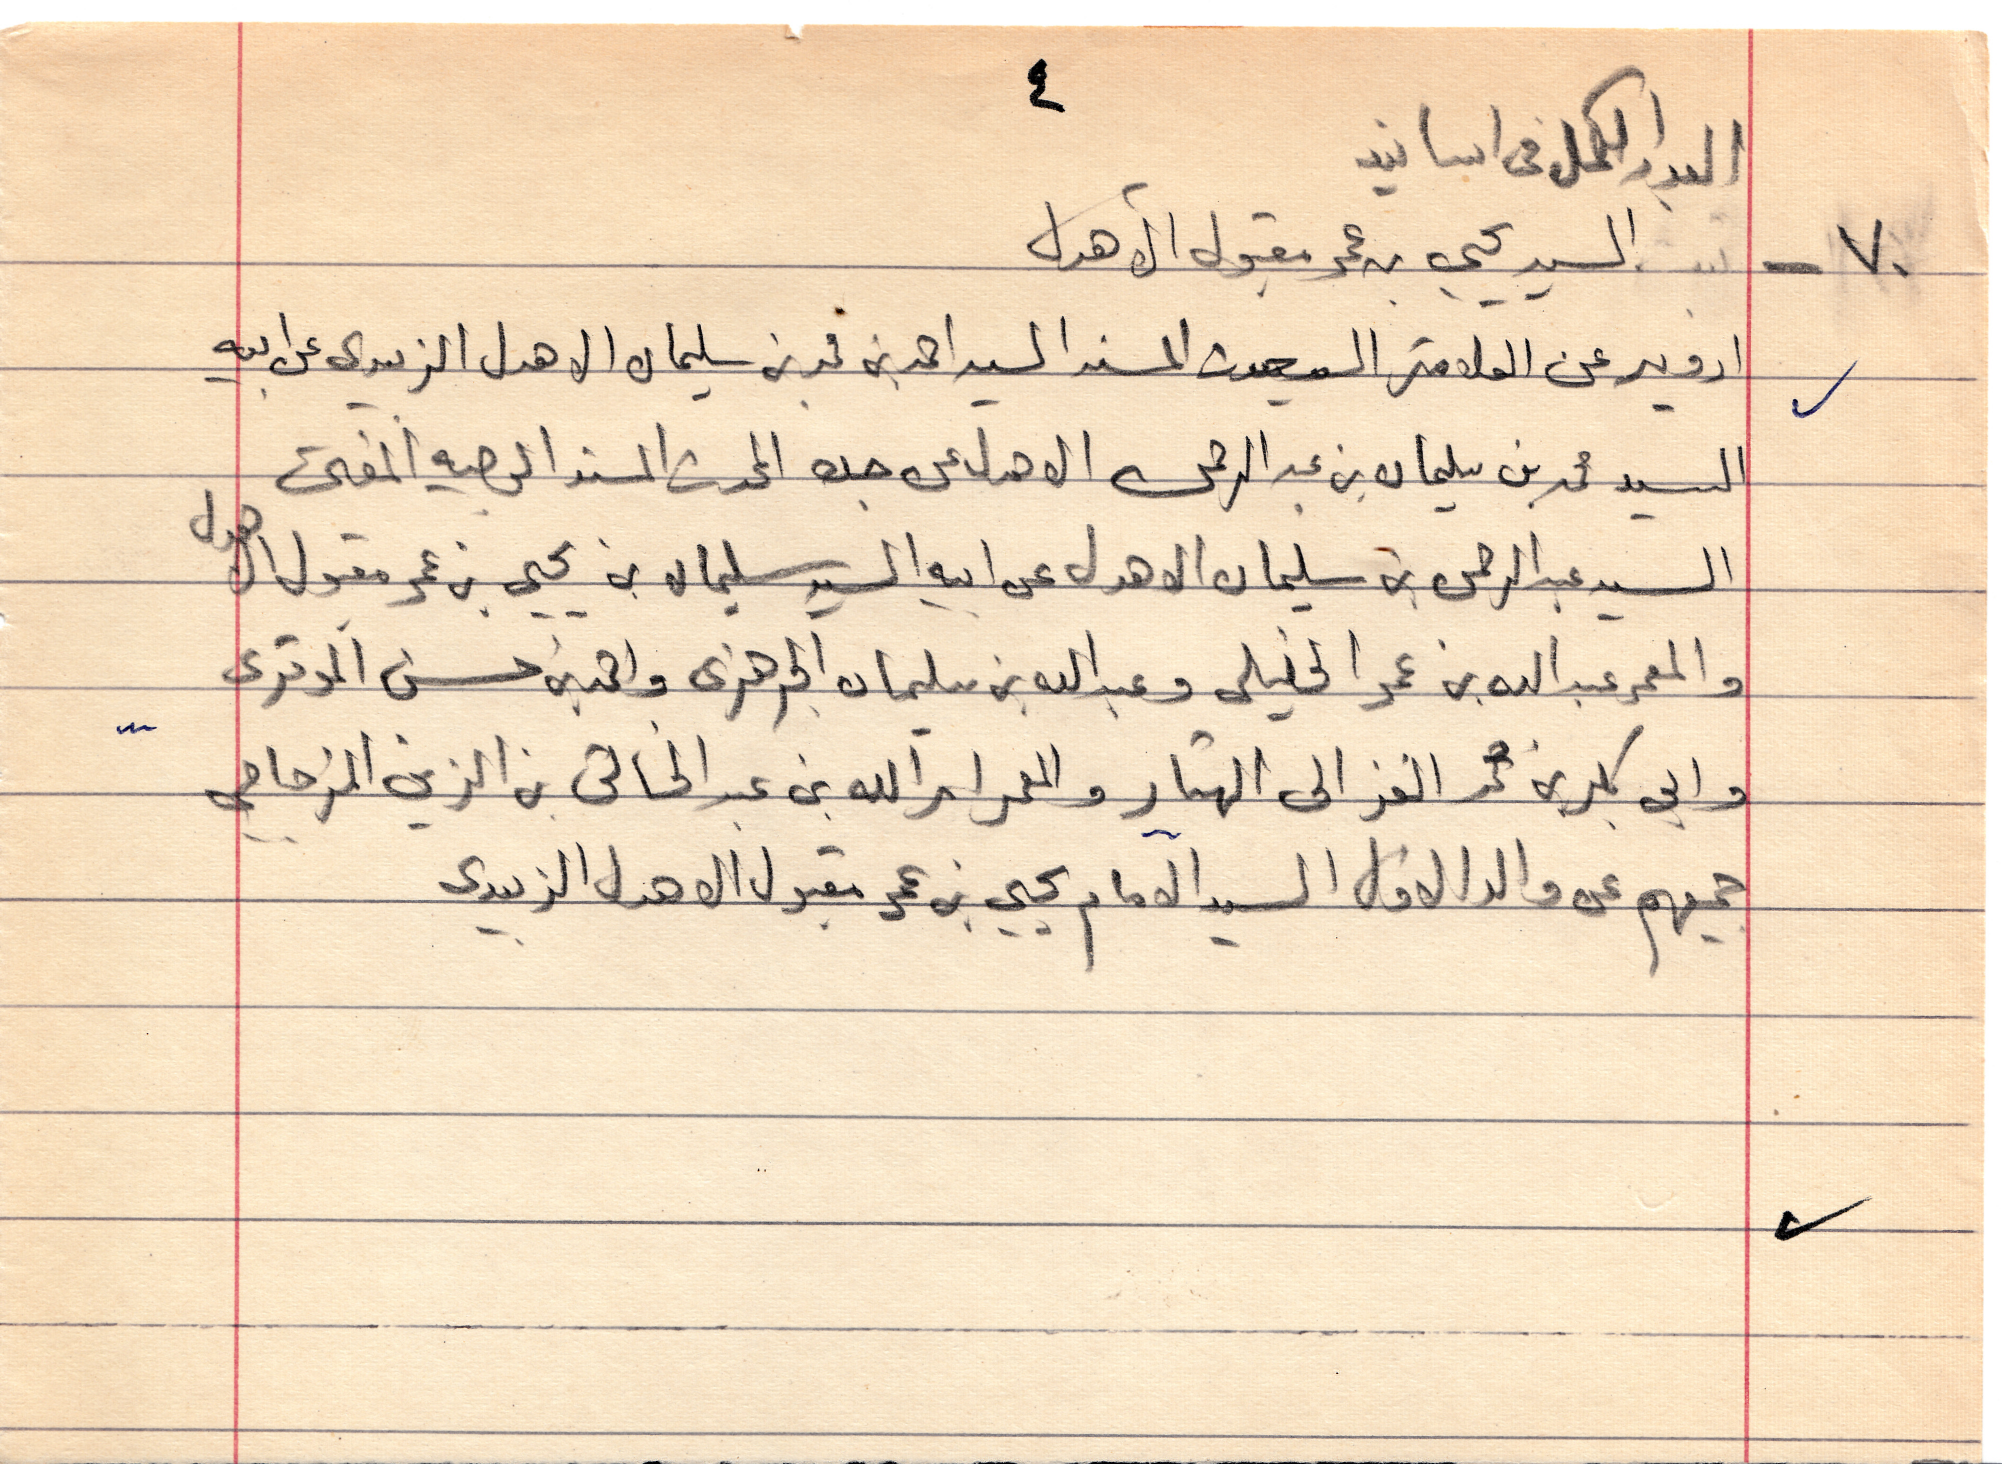 ٤
العدد الكمل في اسانيد
٧٠ - السيد يحيي بن عمر مقبول الأهدل
ارويه عن العلامة المسند السيد احمد بن محمد بن سليمان الاهدل الزبيدى عن ابيه
السيد محمد بن سليمان بن عبد الرحمن الاهدل عن جده المحدث المسند الوجيه المفتى
السيد عبد الرحمن بن سليمان الاهدل عن ابيه السيد سليمان بن يحيي بن عمر مقبول الاهدل
والمعمر عبد الله بن عمر الخليلى وعبد الله بن سليمان الجرهزى واحمد بن حسن الموقرى
وابي بكر بن محمد الغزالى الهتار والمعمر امر الله بن عبد الخالق بن الزين المزجاجي
جميعهم عن والد الاول السيد الامام يحيي بن عمر مقبول الاهدل الزبيدى